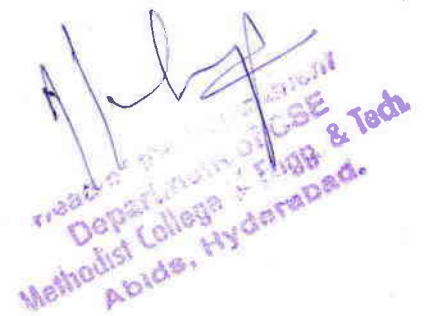 Head of the Department
Department of CSE
Methodist College of Engg. & Tech.
Abids, Hyderabad.